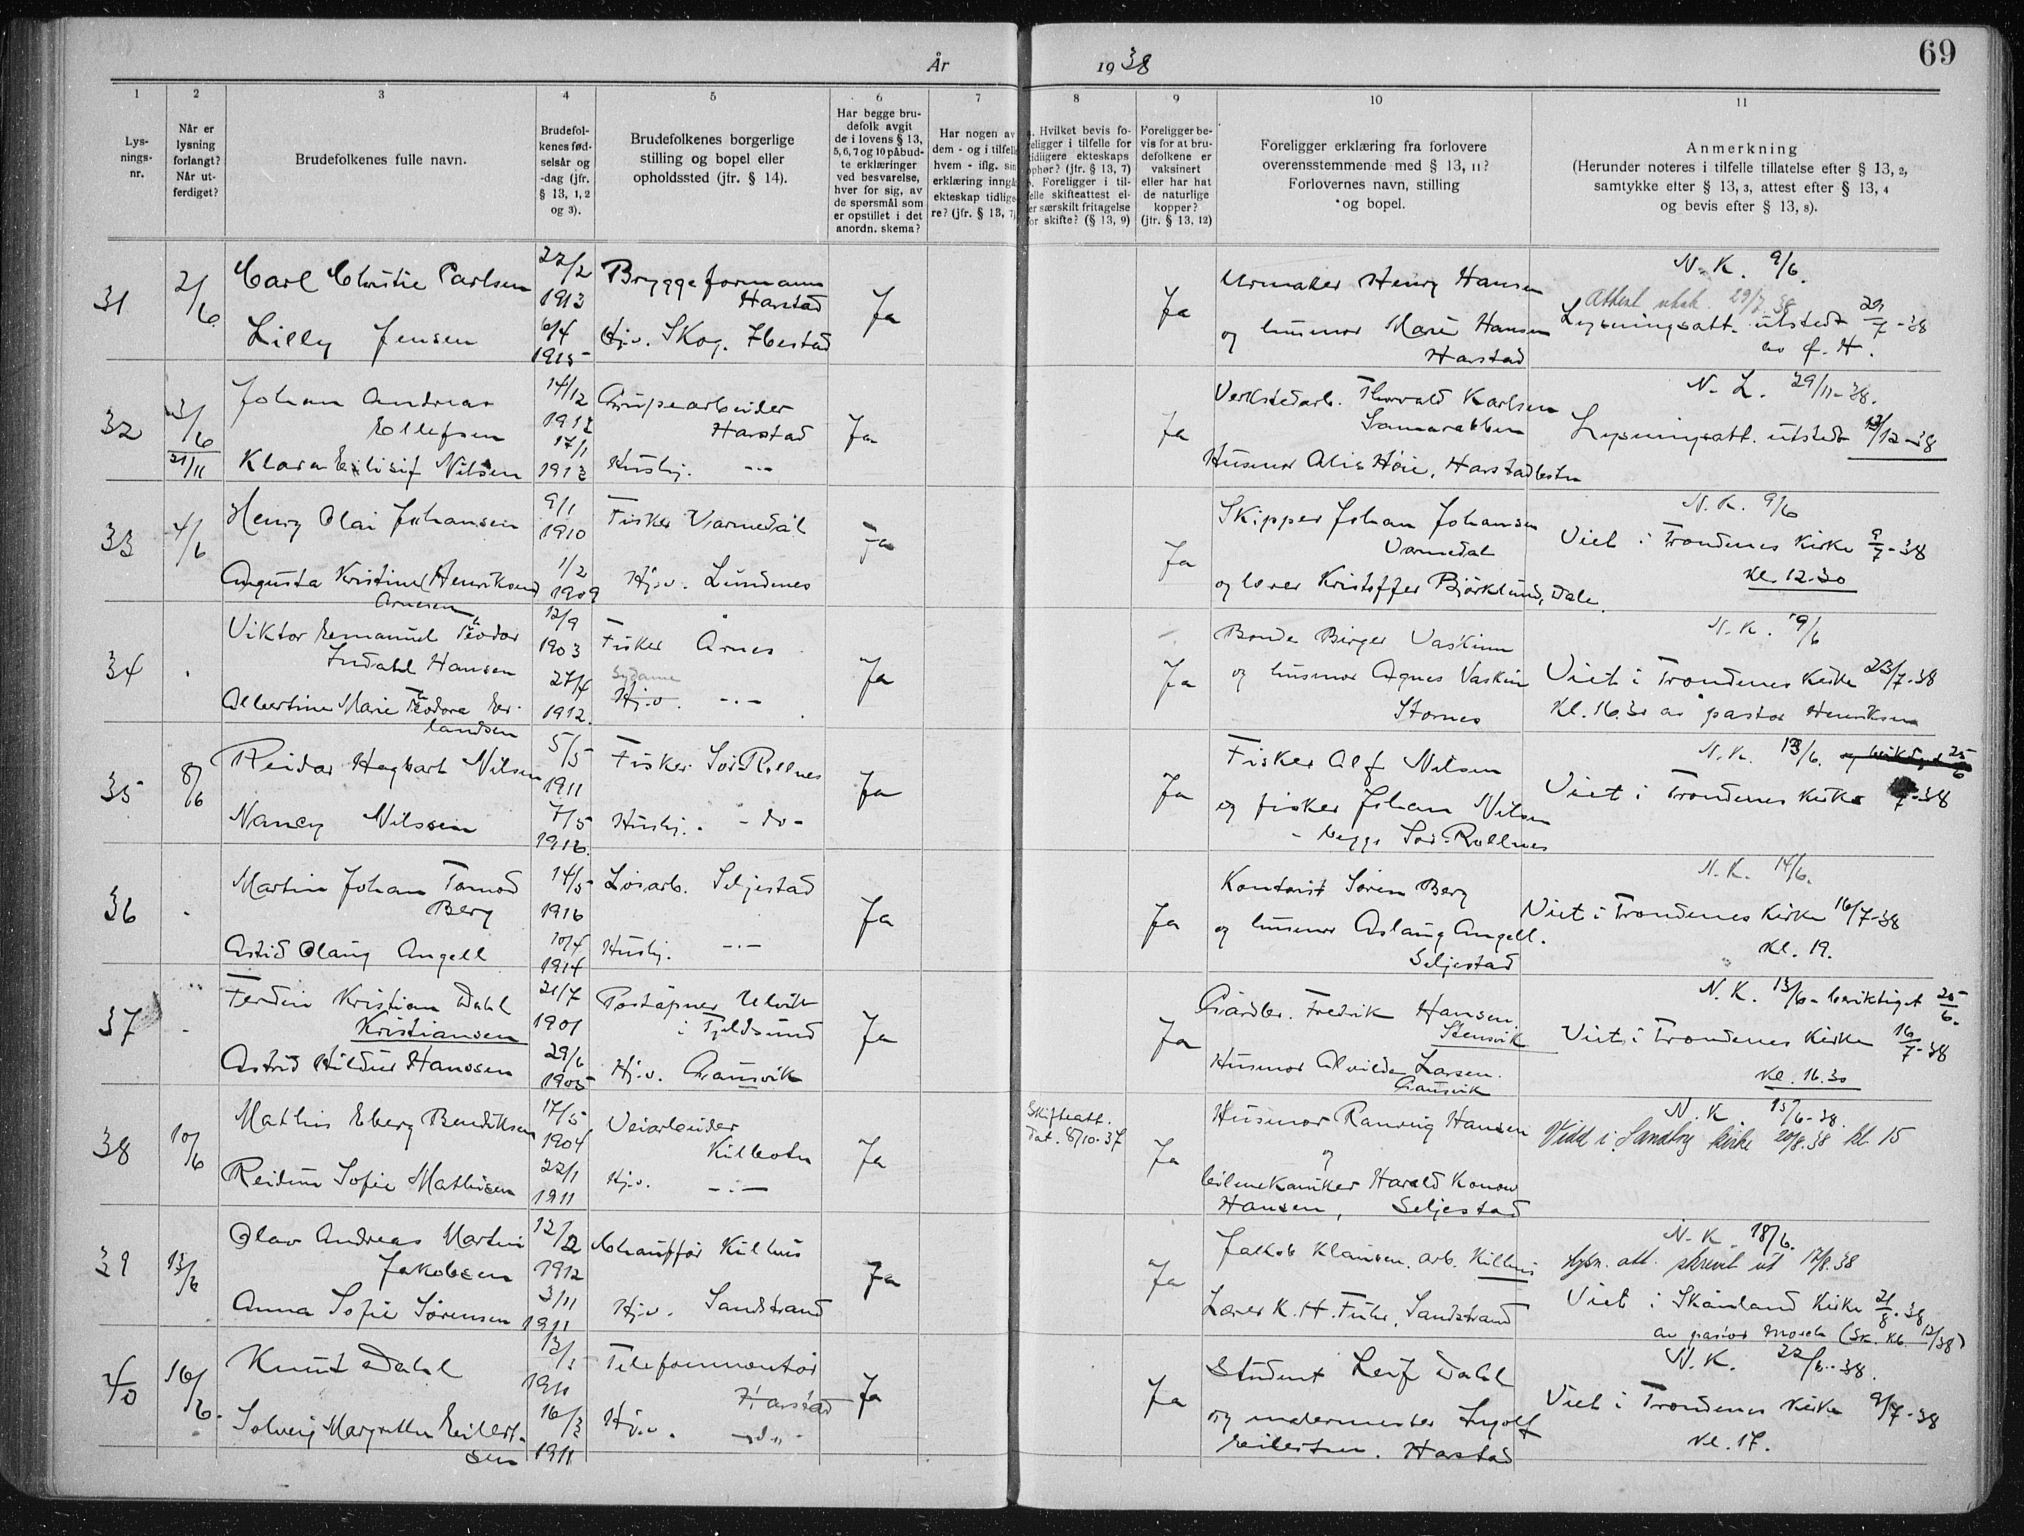 69
År 1938
1 2 3 4 5 6 7 8 9 10 11
Lys-
nings-
nr.
Når er
lysning
forlangt?
Når ut-
ferdiget?
Brudefolkenes fulle navn.
Brudefol-
kenes fød-
selsår og
-dag (jfr.
§ 13, 1, 2
og 3).
Brudefolkenes borgerlige
stilling og bopel eller
opholdssted (jfr. § 14).
Har begge bru-
defolk avgit
de i lovens § 13,
5, 6, 7 og 10 påbud-
te erklæringer
ved besvarelse,
hver for sig, av
de spørsmål som
er opstillet i det
anordn. skema?
Har nogen av
dem - og i tilfelle
hvem - iflg. sin
erklæring inngå
ekteskap tidlige-
re? (jfr. § 13, 7)
a. Hvilket bevis fo-
religger i tilfelle for
tidligere ekteskaps
ophør? (jfr. § 13, 7)
b. Foreligger i til-
felle skifteattest el-
ler særskilt fritagelse
for skifte? (§ 13, 9)
Foreligger be-
vis for at bru-
defolkene er
vaksinert
eller har hat
de naturlige
kopper?
(jfr. § 13, 12)
Foreligger erklæring fra forlovere
overensstemmende med § 13, 11?
Forlovernes navn, stilling
og bopel.
Anmerkning
(Herunder noteres i tilfelle tillatelse efter § 13, 2,
samtykke efter § 13, 3, attest efter § 13, 4
og bevis efter § 13, 8).
31
2/6
Carl Christie Carlsen
22/2
1913
Bryggeformann
Harstad
Lilly Jensen
6/4
1915
Hj.v. Skog, Ibestad
Ja
Ja
Urmaker Henry Hansen
og husmor Marie Hansen
Harstad
N. K. 9/6.
Attest utsk. 29/7 38
Lysningsatt. utstedt 29/7-38
av f. H.
32
3/6
21/11
Johan Andreas
Ellefsen
14/12
1912
Grupearbeider
Harstad
Klara Elisif Nilsen
17/1
1913
Hushj. -"-
Ja
Ja
Verkstedarb. Thorvald Karlsen
Samarabben
Husmor Alis Høie, Harstadbotn
N. L. 29/11-38.
Lysningsatt. utstedt 13/12-38
33
4/6
Henry Olai Johansen
9/1
1910
Fisker Varmedal
Augusta Kristine Henriksen
Arnesen
1/2
1909
Hj.v. Lundenes
Ja
Ja
Skipper Johan Johansen
Varmedal
og lærer Kristoffer Bjørklund, Dale.
N. K. 9/6
Viet i Trondenes Kirke 9/7-38
Kl. 12.30
34
Viktor Emanuel Teodor
Indahl Hansen
12/9
1903
Fisker Årnes
Albertine Marie Teodora Er-
landsen
27/4
1912.
Sydame
Hj.v. -"-
Ja
Ja
Bonde Birger Vaskinn
og husmor Agnes Vaskinn
Stornes
N. K. 9/6
Viet i Trondenes Kirke 23/7-38
Kl. 16.30 av pastor Henriksen
35
8/6
Reidar Hagbart Nilsen
5/5
1911
Fisker Sør-Rollnes
Nancy Nilssen
7/5
1916.
Hushj. -do-
Ja
Ja
Fisker Alf Nilsen
og fisker Johan Nilsen
- begge Sør-Rollnes
N. K. 13/6.
Viet i Trondenes Kirke 7-38
36
Martin Johan Tomod
Berg
14/5
1916
Løsarb. Seljestad
Astid Olaug Angell
10/4
1914
Hushj. -"-
Ja
Ja
Kontorist Søren Berg
og husmor Aslaug Angell.
Seljestad
N. K. 14/6.
Viet i Trondenes Kirke 16/7-38
Kl. 19.
37
Ferdin Kristian Dahl
Kristiansen
21/7
1901
Poståpner Ulvik
i Tjeldsund
Astrid Hildur Hanssen
29/6
1905
Hj.v. Gausvik
Ja
Ja
Gårdbr. Fredrik Hansen,
Stensvik
Husmor Alvilde Larsen.
Gausvik
N. K. 13/6 - beriktiget 25/6.
Viet i Trondenes Kirke 16/7-38
Kl. 16.30
38
10/6
Mathis Eberg Bendiksen
17/5
1904
Veiarbeider
Kilbotn
Reidun Sofie Mathisen
22/1
1911
Hj.v. -"-
Ja
Skifteatt.
dat. 8/10-37
Ja
Husmor Ranveig Hansen
og
bilmekaniker Harald Konow
Hansen, Seljestad
N. K 15/6-38.
Vidd i Sandtorg kirke 20/8.38 kl. 15
39
13/6
Olav Andreas Martin
Jakobsen
12/2
1912
Chauffør Kilhus
Anna Sofie Sørensen
3/11
1911
Hj.v. Sandstrand
Ja
Ja
Jakob Klausen, arb. Kilhus
Lærer K. H. Fuhr, Sandstrand
N. K. 18/6.
Lysn. att. skrevet ut 17/8.38
Viet i Skånland Kirke 21/8-38
av pastor Mosch (Sk. Kb. 12/38)
40
16/6.
Knut Dahl
13/5
1911
Telefonmontør
Harstad
Solveig Margrethe Eilert-
sen
16/3
1911
Hj.v. -"-
Ja
Ja
Student Leif Dahl
og malermester Ingolf
Eilertsen. Harstad
N. K. 22/6-38.
Viet i Trondenes Kirke 9/7-38
Kl. 17.